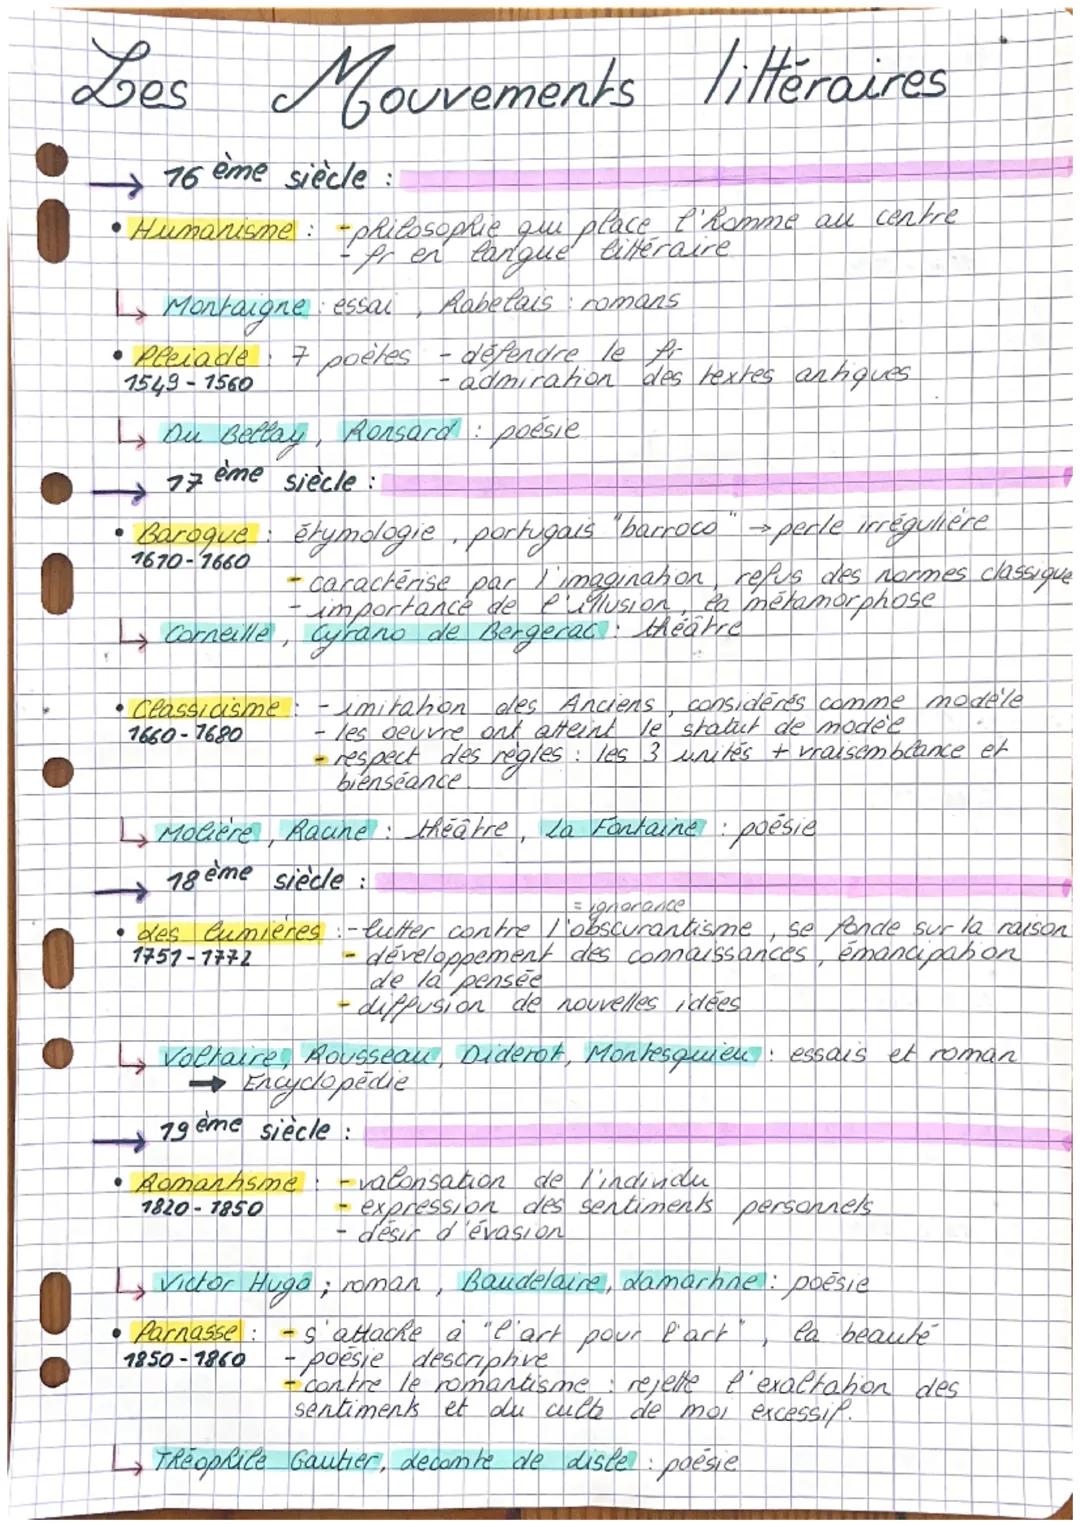 Les Mouvements littéraires
→ 16 ème siècle :
• Humanisme : - philosophie qui place l'homme au centre
- fr en langue littéraire
↳ Montaigne : essai , Rabelais : romans
• Pleiade : 7 poètes - défendre le fr
1549 - 1560 - admiration des textes antiques
↳ Du Bellay , Ronsard : poésie
→ 17 ème siècle :
• Baroque : étymologie , portugais "barroco" → perle irrégulière
1610 - 1660
- caractérise par l'imagination , refus des normes classique
- importance de l'illusion , la métamorphose
↳ Corneille , Cyrano de Bergerac : théâtre
• Classicisme : - imitation des Anciens , considérés comme modèle
1660 - 1680 - les oeuvre ont atteint le statut de modèle
- respect des règles : les 3 unités + vraisemblance et
bienséance.
↳ Molière , Racine : théâtre , La Fontaine : poésie
→ 18 ème siècle :
= ignorance
• Les lumières : - lutter contre l'obscurantisme , se fonde sur la raison
1751 - 1772 - développement des connaissances , émancipation
de la pensée
- diffusion de nouvelles idées
↳ Voltaire, Rousseau, Diderot, Montesquieu : essais et roman
→ Encyclopédie
→ 19 ème siècle :
• Romantisme : - valorisation de l'individu
1820 - 1850 - expression des sentiments personnels
- désir d'évasion
↳ Victor Hugo ; roman , Baudelaire, Lamartine : poésie
• Parnasse : - s'attache à "l'art pour l'art" , la beauté
1850 - 1860 - poésie descriptive
- contre le romantisme : rejette l'exaltation des
sentiments et du culte de moi excessif.
↳ Théophile Gautier, decomte de disle : poésie